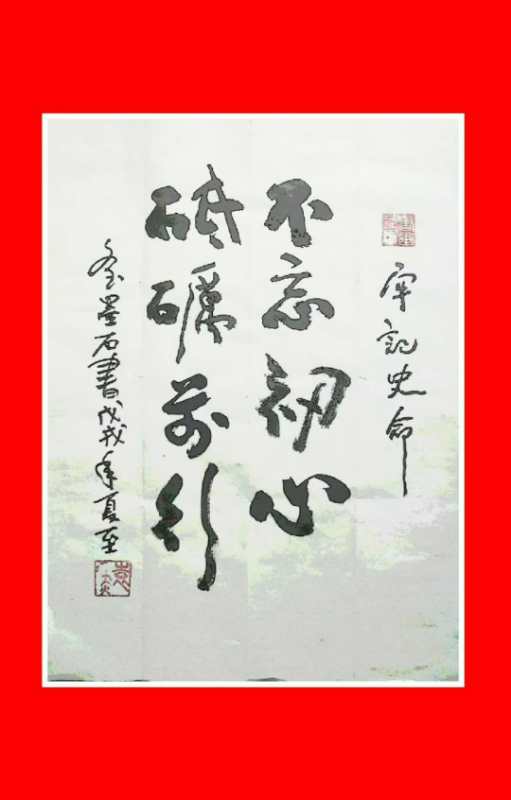 牢記史命
不忘初心
砥礪前行
墨石書戊戌年夏至